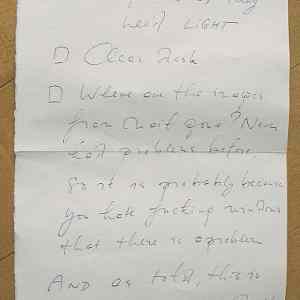 need LIGHT
□ Clear desk
□ Where are the
from
problems before,
So it is probably because
you hate fucking windows
that there is a problem
AND as told, this is